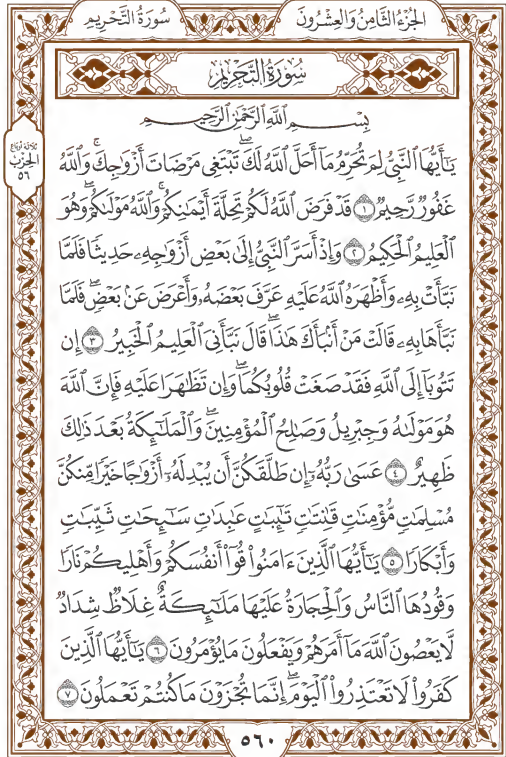 سُورَةُ التَّحْرِيمِ
الجُزْءُ الثَّامِنُ وَالعِشْرُونَ
سُورَةُ التَّحْرِيمِ
بِسْمِ ٱللَّهِ ٱلرَّحْمَٰنِ ٱلرَّحِيمِ
يَٰٓأَيُّهَا ٱلنَّبِيُّ لِمَ تُحَرِّمُ مَآ أَحَلَّ ٱللَّهُ لَكَۖ تَبْتَغِى مَرْضَاتَ أَزْوَٰجِكَۚ وَٱللَّهُ
غَفُورٌ رَّحِيمٌ ١ قَدْ فَرَضَ ٱللَّهُ لَكُمْ تَحِلَّةَ أَيْمَٰنِكُمْۚ وَٱللَّهُ مَوْلَىٰكُمْۖ وَهُوَ
ٱلْعَلِيمُ ٱلْحَكِيمُ ٢ وَإِذْ أَسَرَّ ٱلنَّبِيُّ إِلَىٰ بَعْضِ أَزْوَٰجِهِۦ حَدِيثًا فَلَمَّا
نَبَّأَتْ بِهِۦ وَأَظْهَرَهُ ٱللَّهُ عَلَيْهِ عَرَّفَ بَعْضَهُۥ وَأَعْرَضَ عَنۢ بَعْضٍۖ فَلَمَّا
نَبَّأَهَا بِهِۦ قَالَتْ مَنْ أَنۢبَأَكَ هَٰذَاۖ قَالَ نَبَّأَنِىَ ٱلْعَلِيمُ ٱلْخَبِيرُ ٣ إِن
تَتُوبَآ إِلَى ٱللَّهِ فَقَدْ صَغَتْ قُلُوبُكُمَاۖ وَإِن تَظَٰهَرَا عَلَيْهِ فَإِنَّ ٱللَّهَ
هُوَ مَوْلَىٰهُ وَجِبْرِيلُ وَصَٰلِحُ ٱلْمُؤْمِنِينَۖ وَٱلْمَلَٰٓئِكَةُ بَعْدَ ذَٰلِكَ
ظَهِيرٌ ٤ عَسَىٰ رَبُّهُۥٓ إِن طَلَّقَكُنَّ أَن يُبْدِلَهُۥٓ أَزْوَٰجًا خَيْرًا مِّنكُنَّ
مُسْلِمَٰتٍ مُّؤْمِنَٰتٍ قَٰنِتَٰتٍ تَٰٓئِبَٰتٍ عَٰبِدَٰتٍ سَٰٓئِحَٰتٍ ثَيِّبَٰتٍ
وَأَبْكَارًا ٥ يَٰٓأَيُّهَا ٱلَّذِينَ ءَامَنُوا۟ قُوٓا۟ أَنفُسَكُمْ وَأَهْلِيكُمْ نَارًا
وَقُودُهَا ٱلنَّاسُ وَٱلْحِجَارَةُ عَلَيْهَا مَلَٰٓئِكَةٌ غِلَاظٌ شِدَادٌ
لَّا يَعْصُونَ ٱللَّهَ مَآ أَمَرَهُمْ وَيَفْعَلُونَ مَا يُؤْمَرُونَ ٦ يَٰٓأَيُّهَا ٱلَّذِينَ
كَفَرُوا۟ لَا تَعْتَذِرُوا۟ ٱلْيَوْمَۖ إِنَّمَا تُجْزَوْنَ مَا كُنتُمْ تَعْمَلُونَ ٧
ثلاثة أرباع
الحِزْب
٥٦
٥٦٠